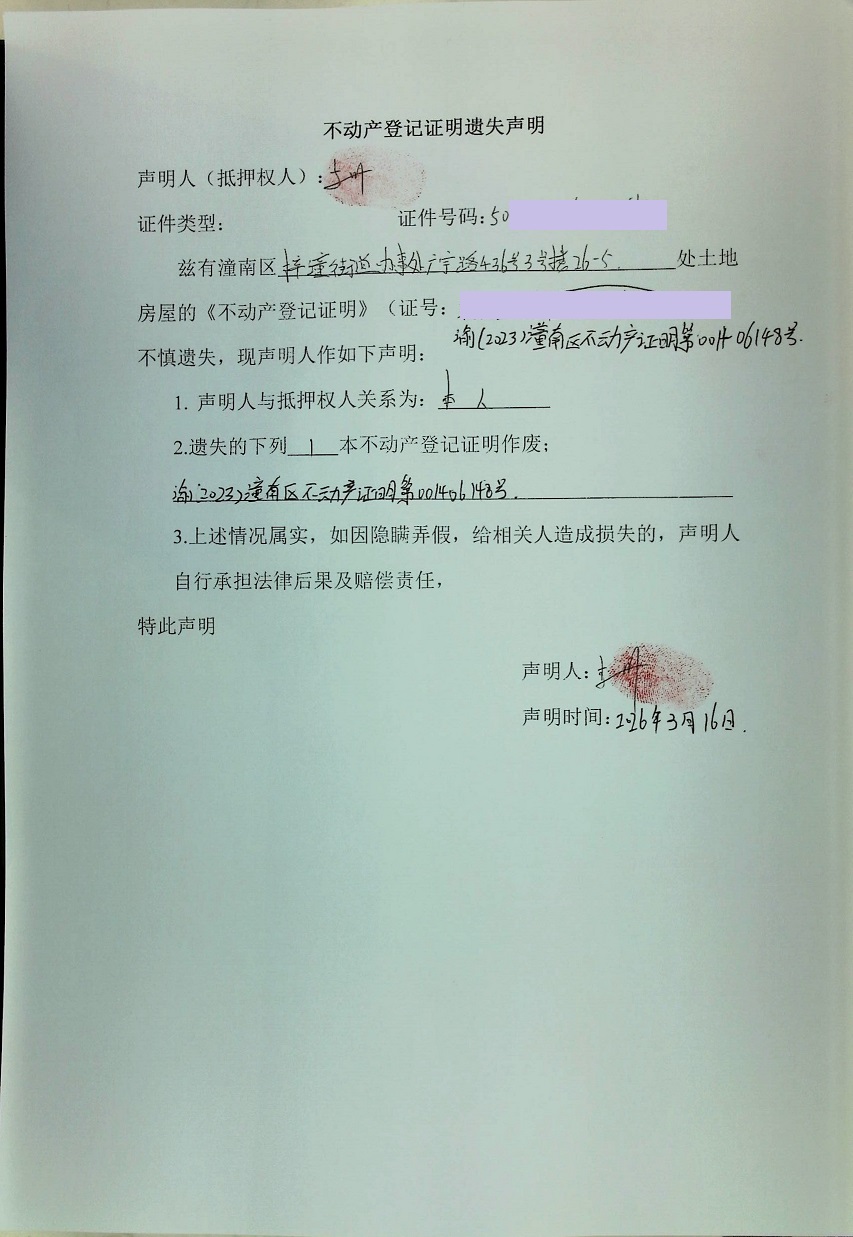 不动产登记证明遗失声明
声明人（抵押权人）：李丹
证件类型： 证件号码：50
兹有潼南区梓潼街道办事处广宇路436号3号楼26-5.处土地
房屋的《不动产登记证明》（证号：
渝(2023)潼南区不动产证明第001406148号.
不慎遗失，现声明人作如下声明：
1. 声明人与抵押权人关系为：本人
2.遗失的下列1本不动产登记证明作废；
渝(2023)潼南区不动产证明第001406148号.
3.上述情况属实，如因隐瞒弄假，给相关人造成损失的，声明人
自行承担法律后果及赔偿责任，
特此声明
声明人：李丹
声明时间：2026年3月16日.